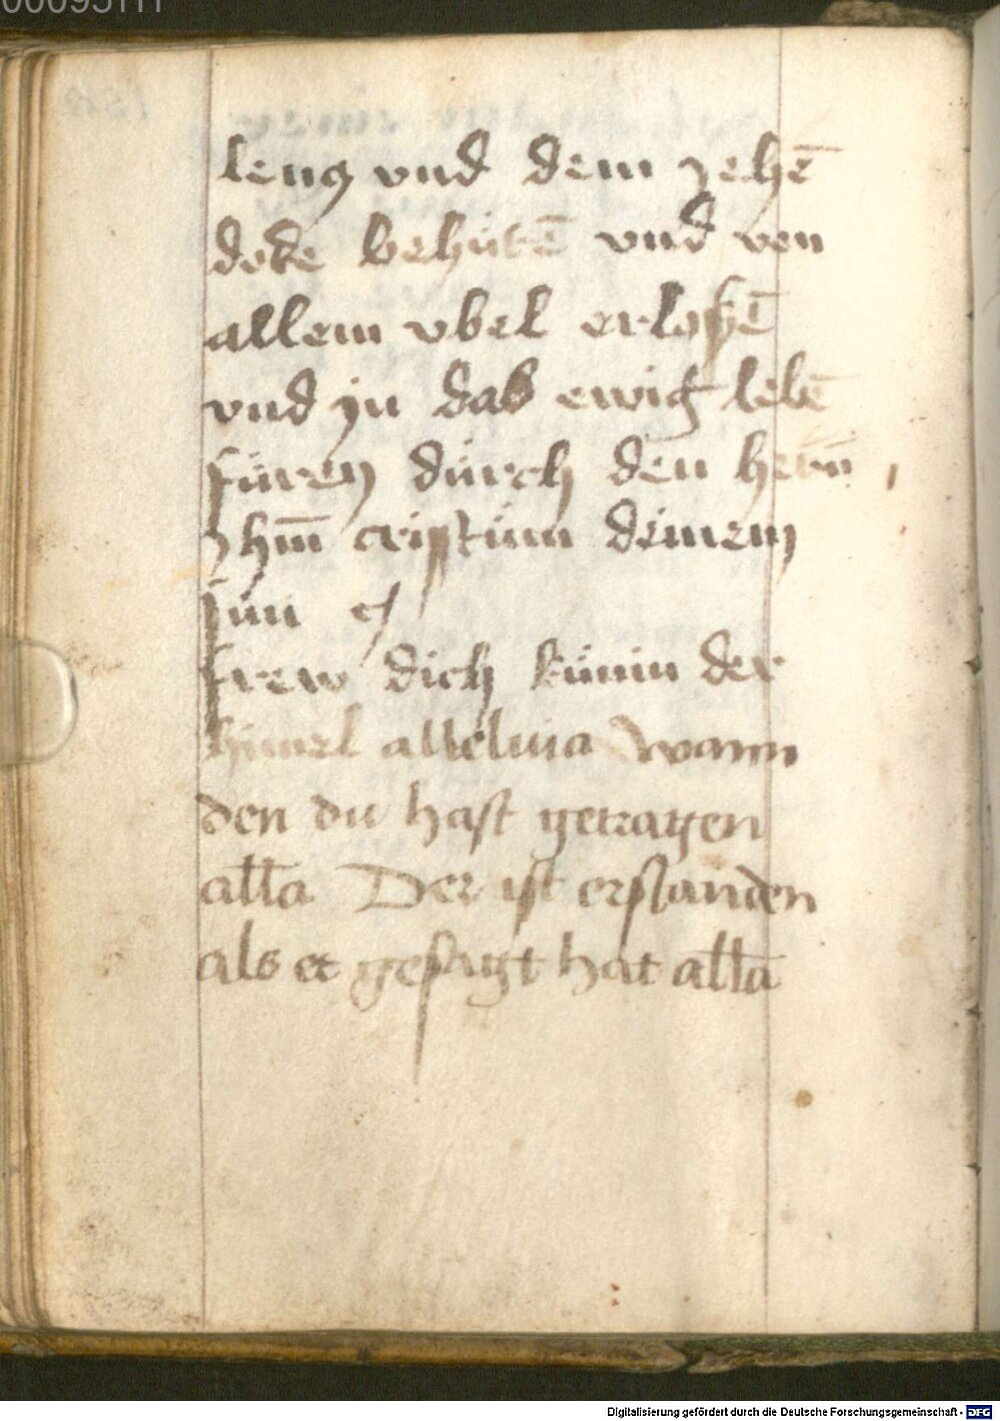 00095111
leng vnd dem zehē
dode behütē vnd von
allem vbel erlosē
vnd jn das ewig lebē
füren dürch den hern̄
jhm̄ cristüm deinem
sun
frew dich künin der
himel alleluia wann
den du hast getragen
all̄a Der ist erstanden
als er gesagt hat all̄a
Digitalisierung gefördert durch die Deutsche Forschungsgemeinschaft - DFG